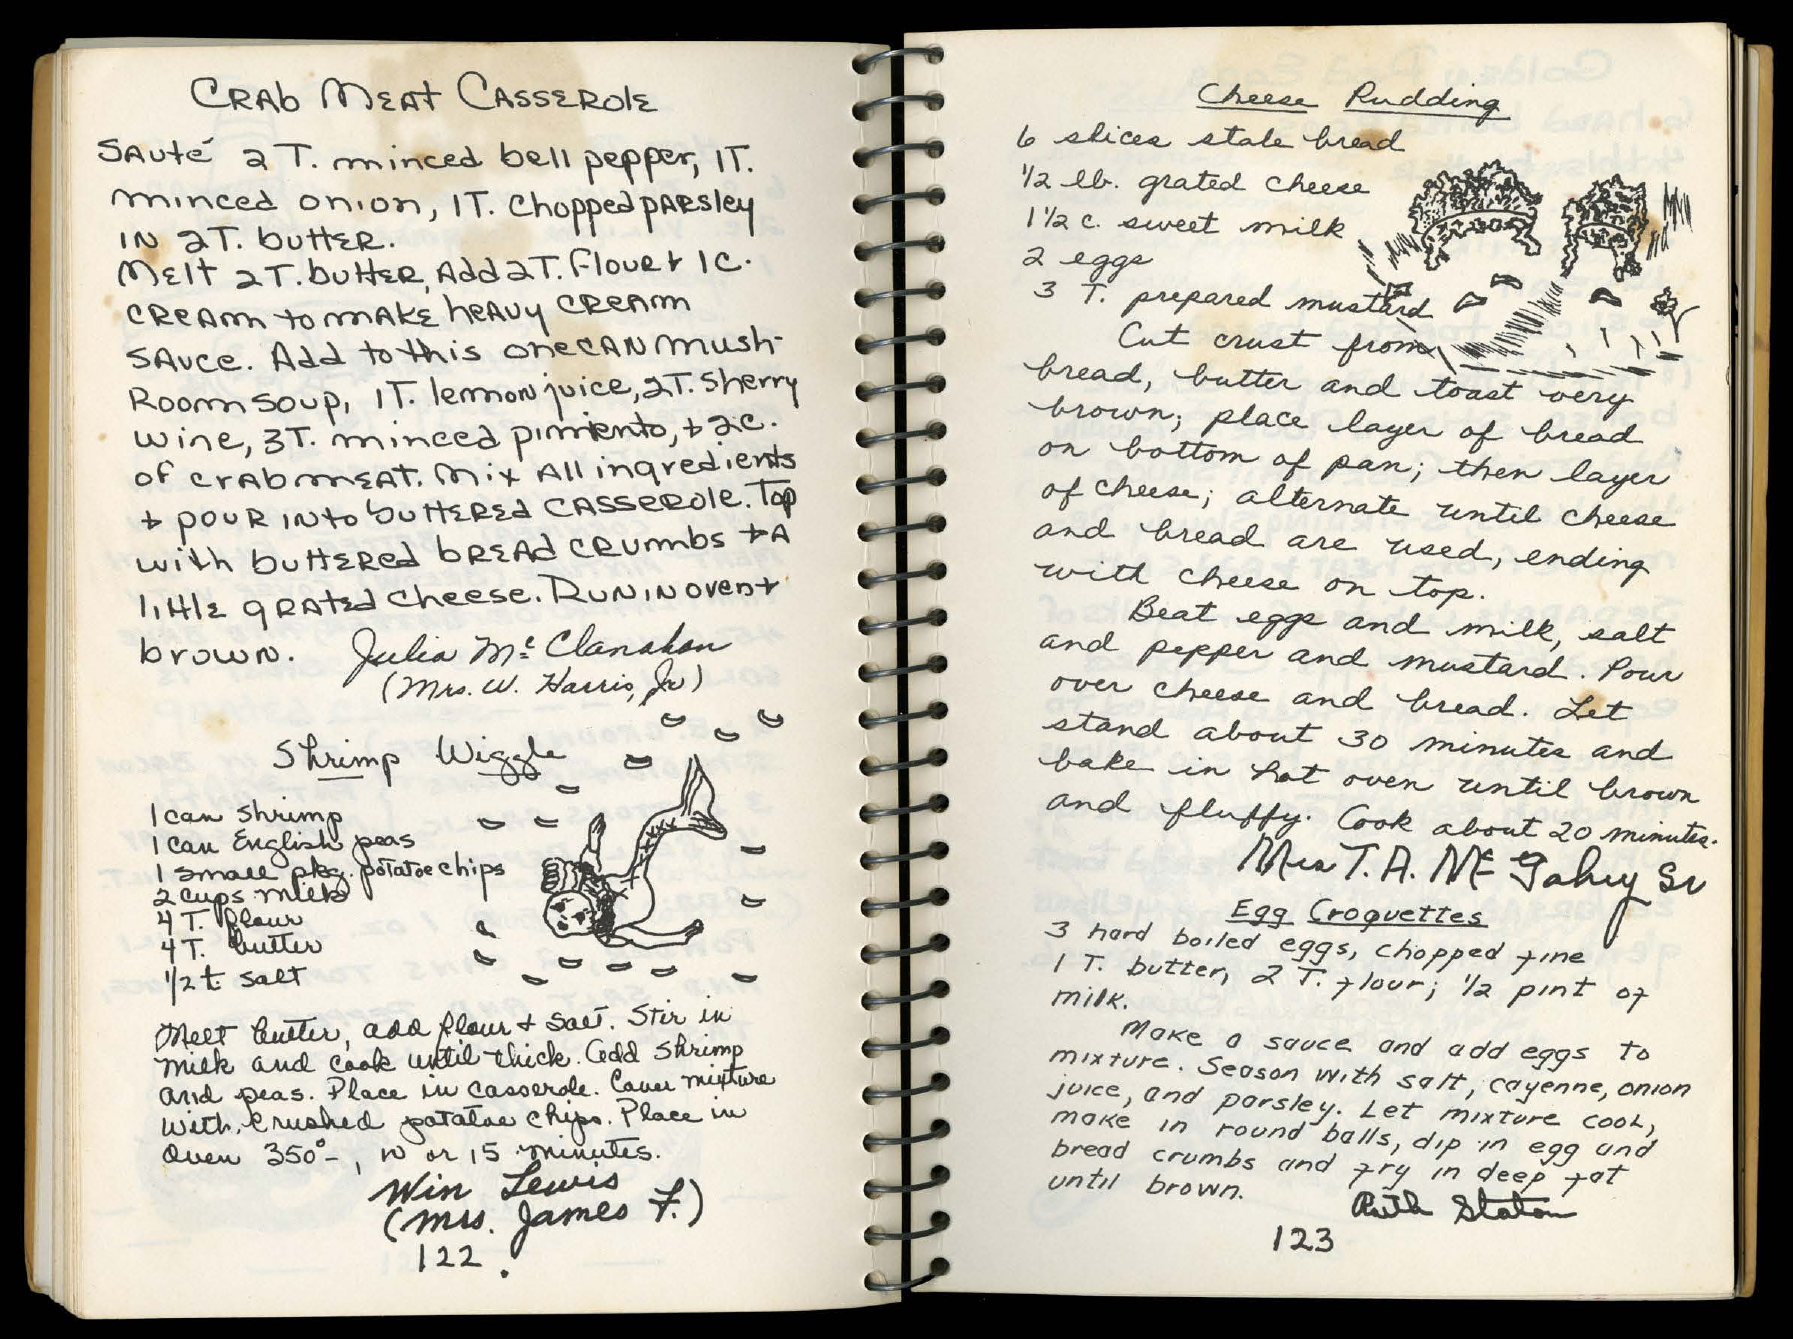 Crab Meat Casserole
Sauté 2 T. minced bell pepper, 1T.
minced onion, 1T. chopped parsley
in 2T. butter.
Melt 2T. butter, Add 2T. flour & 1c.
cream to make heavy cream
sauce. Add to this one can mush-
room soup, 1T. lemon juice, 2T. sherry
wine, 3T. minced pimiento, & 2c.
of crabmeat. Mix all ingredients
& pour into buttered casserole. Top
with buttered bread crumbs & a
little grated cheese. Run in oven &
brown.
Julia McClanahan
(Mrs. W. Harris, Jr)
Shrimp Wiggle
1 can shrimp
1 can English peas
1 small pkg. potatoe chips
2 cups milk
4 T. flour
4 T. butter
1/2 t. salt
Melt butter, add flour & salt. Stir in
milk and cook until thick. Add shrimp
and peas. Place in casserole. Cover mixture
with crushed potatoe chips. Place in
oven 350°-, 10 or 15 minutes.
Win Lewis
(Mrs. James F.)
122.
Cheese Pudding
6 slices stale bread
1/2 lb. grated cheese
1 1/2 c. sweet milk
2 eggs
3 T. prepared mustard
Cut crust from
bread, butter and toast very
brown; place layer of bread
on bottom of pan; then layer
of cheese; alternate until cheese
and bread are used, ending
with cheese on top.
Beat eggs and milk, salt
and pepper and mustard. Pour
over cheese and bread. Let
stand about 30 minutes and
bake in hot oven until brown
and fluffy. Cook about 20 minutes.
Mrs T. A. McGahey Sr
Egg Croquettes
3 hard boiled eggs, chopped fine
1 T. butter, 2 T. flour; 1/2 pint of
milk.
Make a sauce and add eggs to
mixture. Season with salt, cayenne, onion
juice, and parsley. Let mixture cool,
make in round balls, dip in egg and
bread crumbs and fry in deep fat
until brown.
Ruth Staton
123